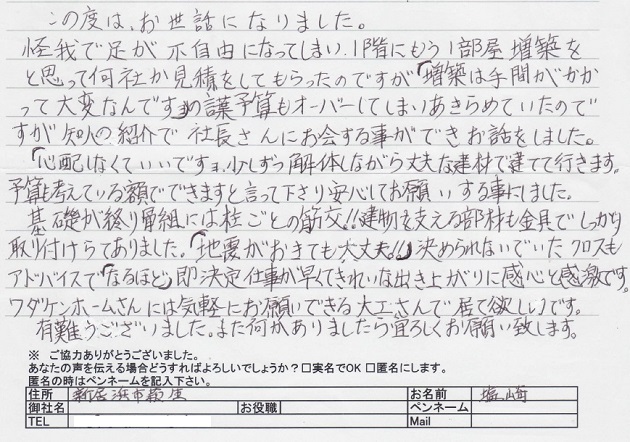 この度は、お世話になりました。
怪我で足が不自由になってしまい、1階にもう1部屋増築を
と思って何社か見積をしてもらったのですが「増築は手間がかか
って大変なんです」の譲予算もオーバーしてしまいあきらめていたので
すが知人の紹介で社長さんにお会する事ができお話をしました。
「心配しなくていいですョ、少しずつ解体しながら丈夫な建材で建てて行きます。
予算も考えている額でできますと言って下さり安心してお願いする事にしました。
基礎が終り骨組には柱ごとの筋交!!建物を支える部材も金具でしっかり
取り付けらてありました。「地震がおきても大丈夫!!」決められないでいたクロスも
アドバイスで「なるほど」即決定仕事が早くてきれいな出き上がりに感心と感激です。
ワダケンホームさんには気軽にお願いできる大工さんで居て欲しいです。
有難うございました。また何かありましたら宜ろしくお願い致します。
※ ご協力ありがとうございました。
あなたの声を伝える場合どうすればよろしいでしょうか？□実名でOK □匿名にします。
匿名の時はペンネームを記入下さい。
住所 新居浜市萩生 お名前 塩崎
御社名 お役職 ペンネーム
TEL Mail